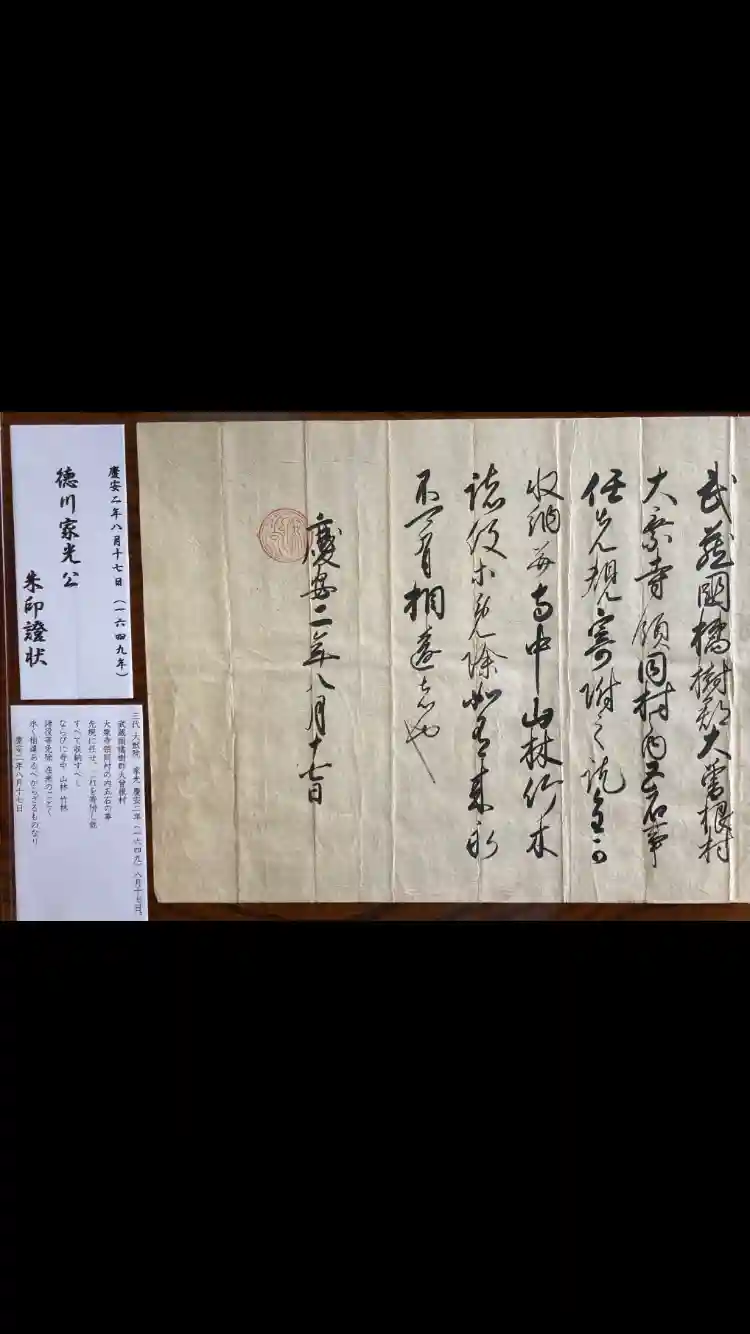 武蔵國橘樹郡大曽根村
大乗寺領同村内五石事
任先規寄附之訖全可
収納并寺中山林竹木
諸役等免除如有来永
不可有相違者也
慶安二年八月十七日
慶安二年八月十七日(一六四九年)
徳川家光公
朱印證状
三代 大猷院 家光 慶安二年(一六四九)八月十七日。
武蔵国橘樹郡大曽根村
大乗寺領同村の内五石の事
先規に任せ、これを寄附し訖
すべて収納すべし
ならびに寺中 山林 竹林
諸役等免除 在来のごとく
永く相違あるべからざるものなり
慶安二年八月十七日